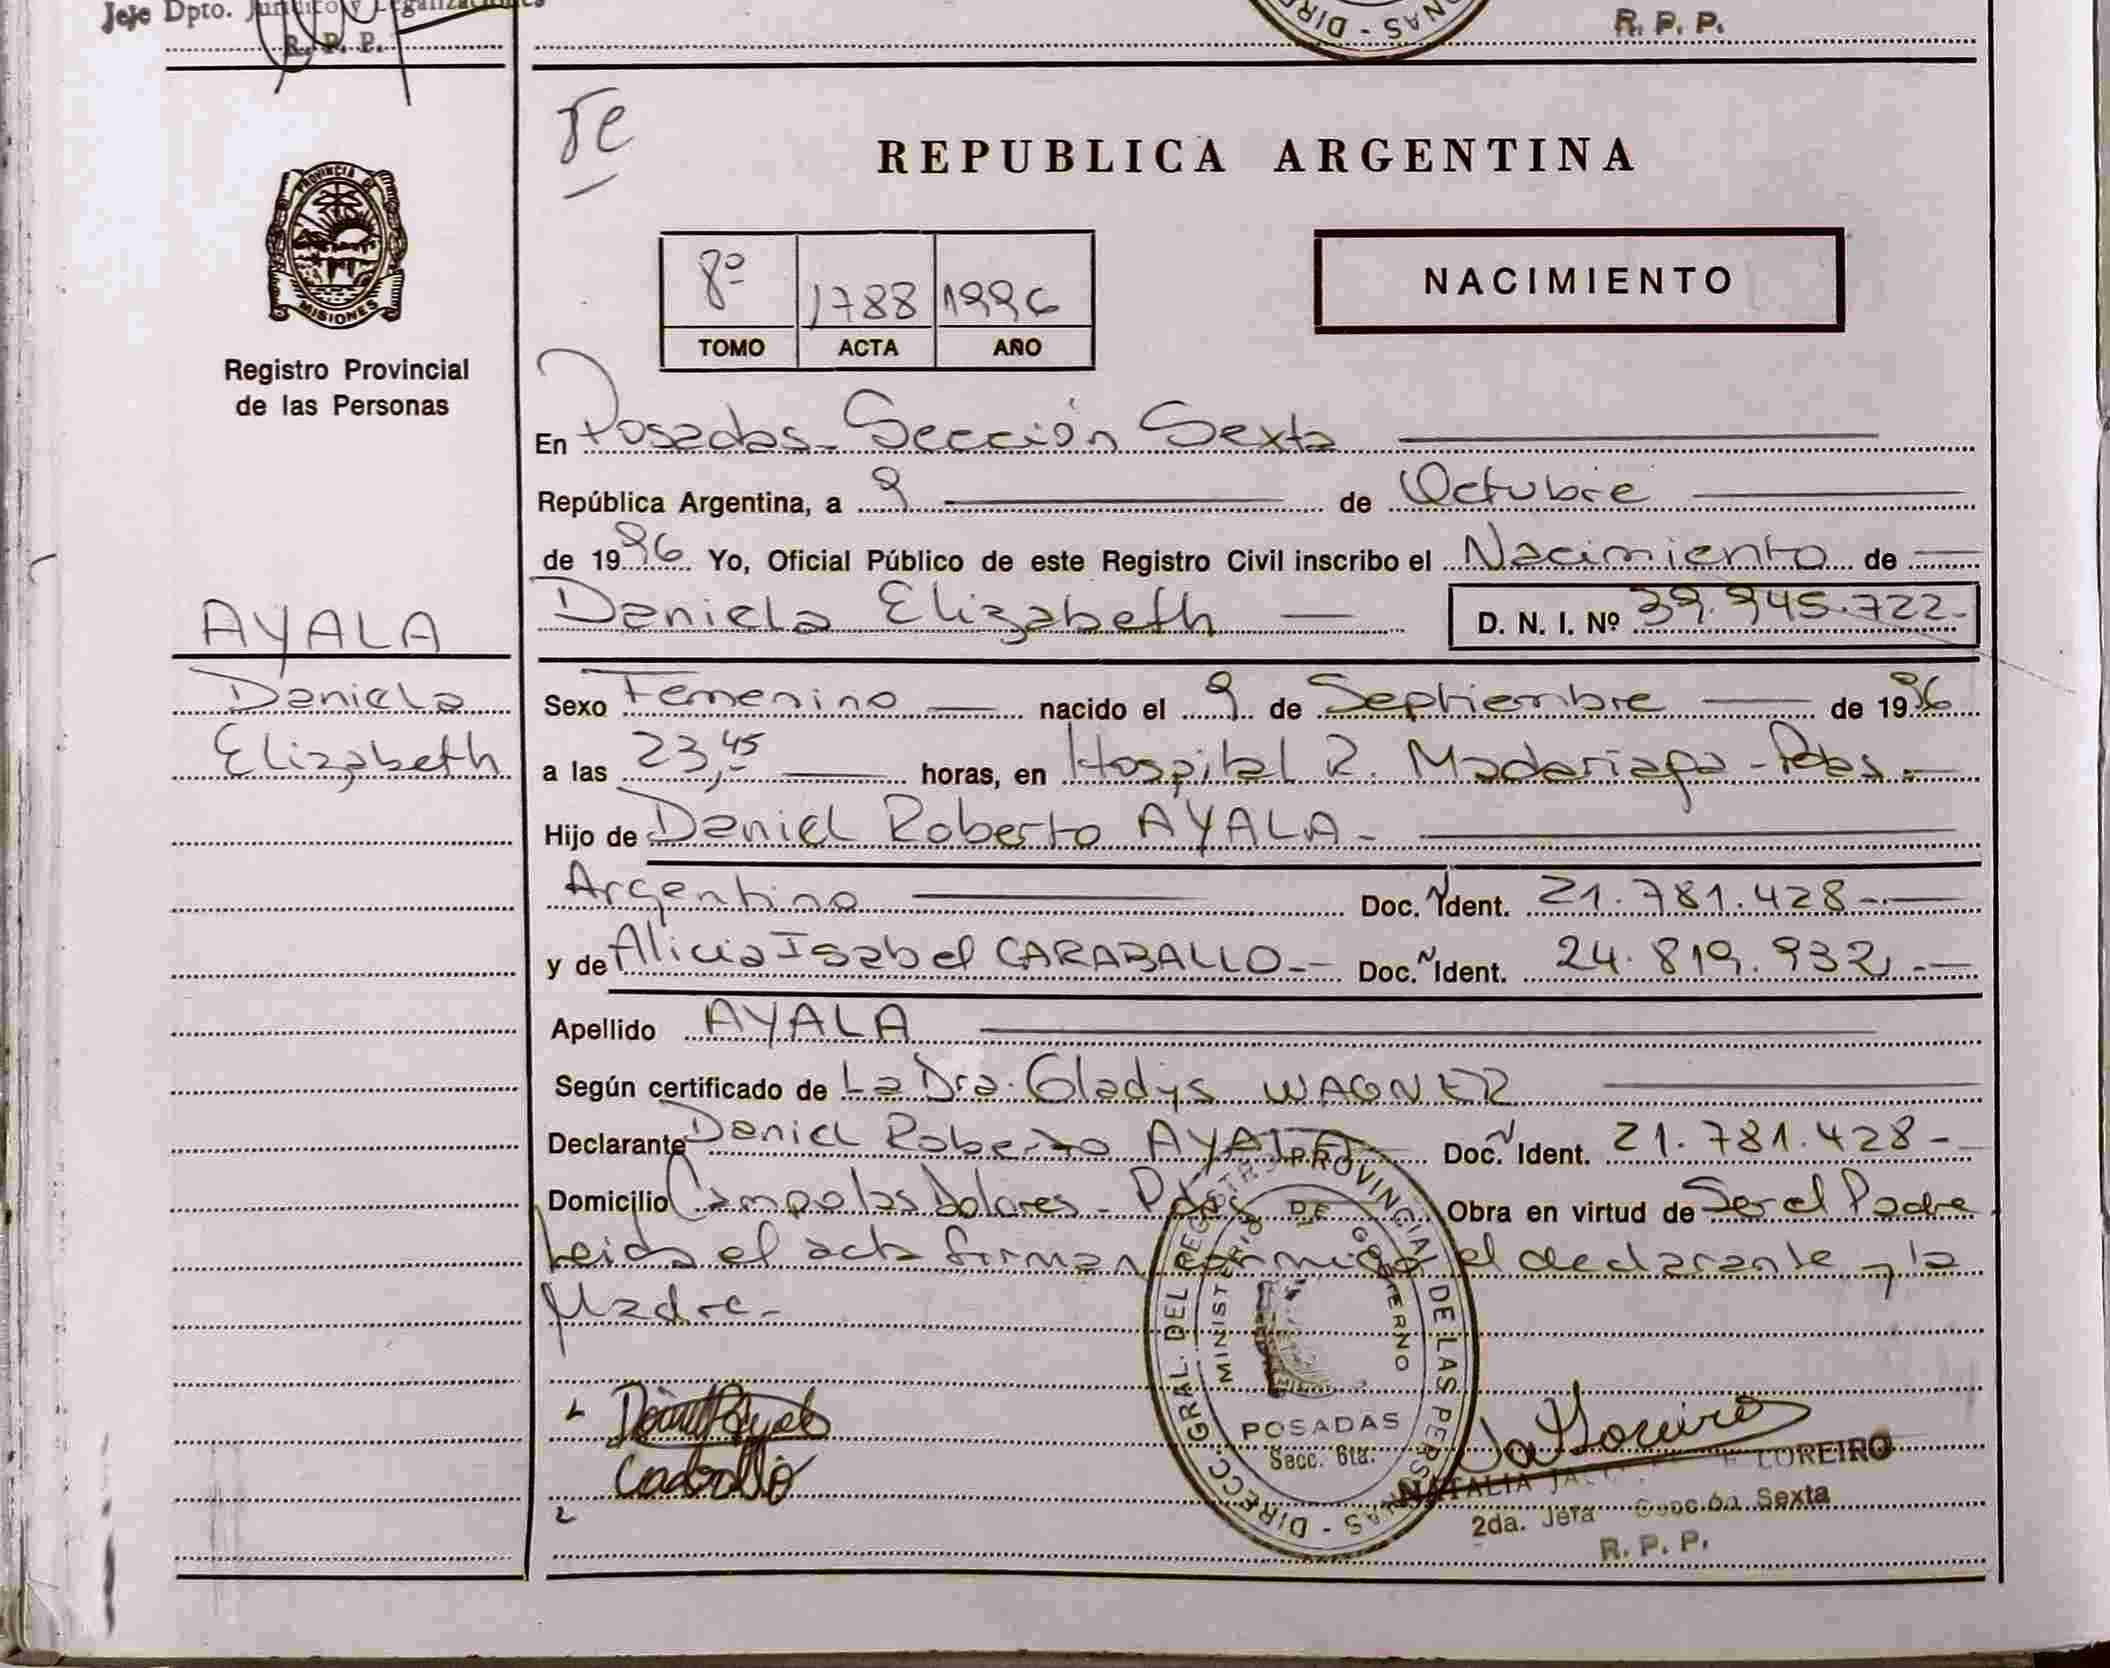 Jefe Dpto. Jurídico y Legalizaciones
R. P. P.
R. P. P.
Te
REPUBLICA ARGENTINA
PROVINCIA DE
MISIONES
Registro Provincial
de las Personas
8º 1788 1996
TOMO ACTA AÑO
NACIMIENTO
En Posadas - Sección Sexta
República Argentina, a 9 de Octubre
de 1996 Yo, Oficial Público de este Registro Civil inscribo el Nacimiento de
Daniela Elizabeth D. N. I. Nº 39.945.722-
AYALA
Daniela
Elizabeth
Sexo Femenino nacido el 9 de Septiembre de 1996
a las 23,45 horas, en Hospital R. Madariaga - Pdas.-
Hijo de Daniel Roberto AYALA -
Argentino Doc. Ident. 21.781.428-.-
y de Alicia Isabel CARABALLO-- Doc. Ident. 24.819.932.-
Apellido AYALA
Según certificado de La Dra. Gladys WAGNER
Declarante Daniel Roberto AYALA Doc. Ident. 21.781.428-
Domicilio Campo las Dolores - Pdas Obra en virtud de Ser el Padre
Leida el acta firman conmigo el declarante y la
Madre-
DIRECC. GRAL. DEL REGISTRO PROVINCIAL DE LAS PERSONAS
MINISTERIO DE GOBIERNO
POSADAS
Secc. 6ta.
NATALIA LOREIRO
2da. Jefa Sección Sexta
R. P. P.